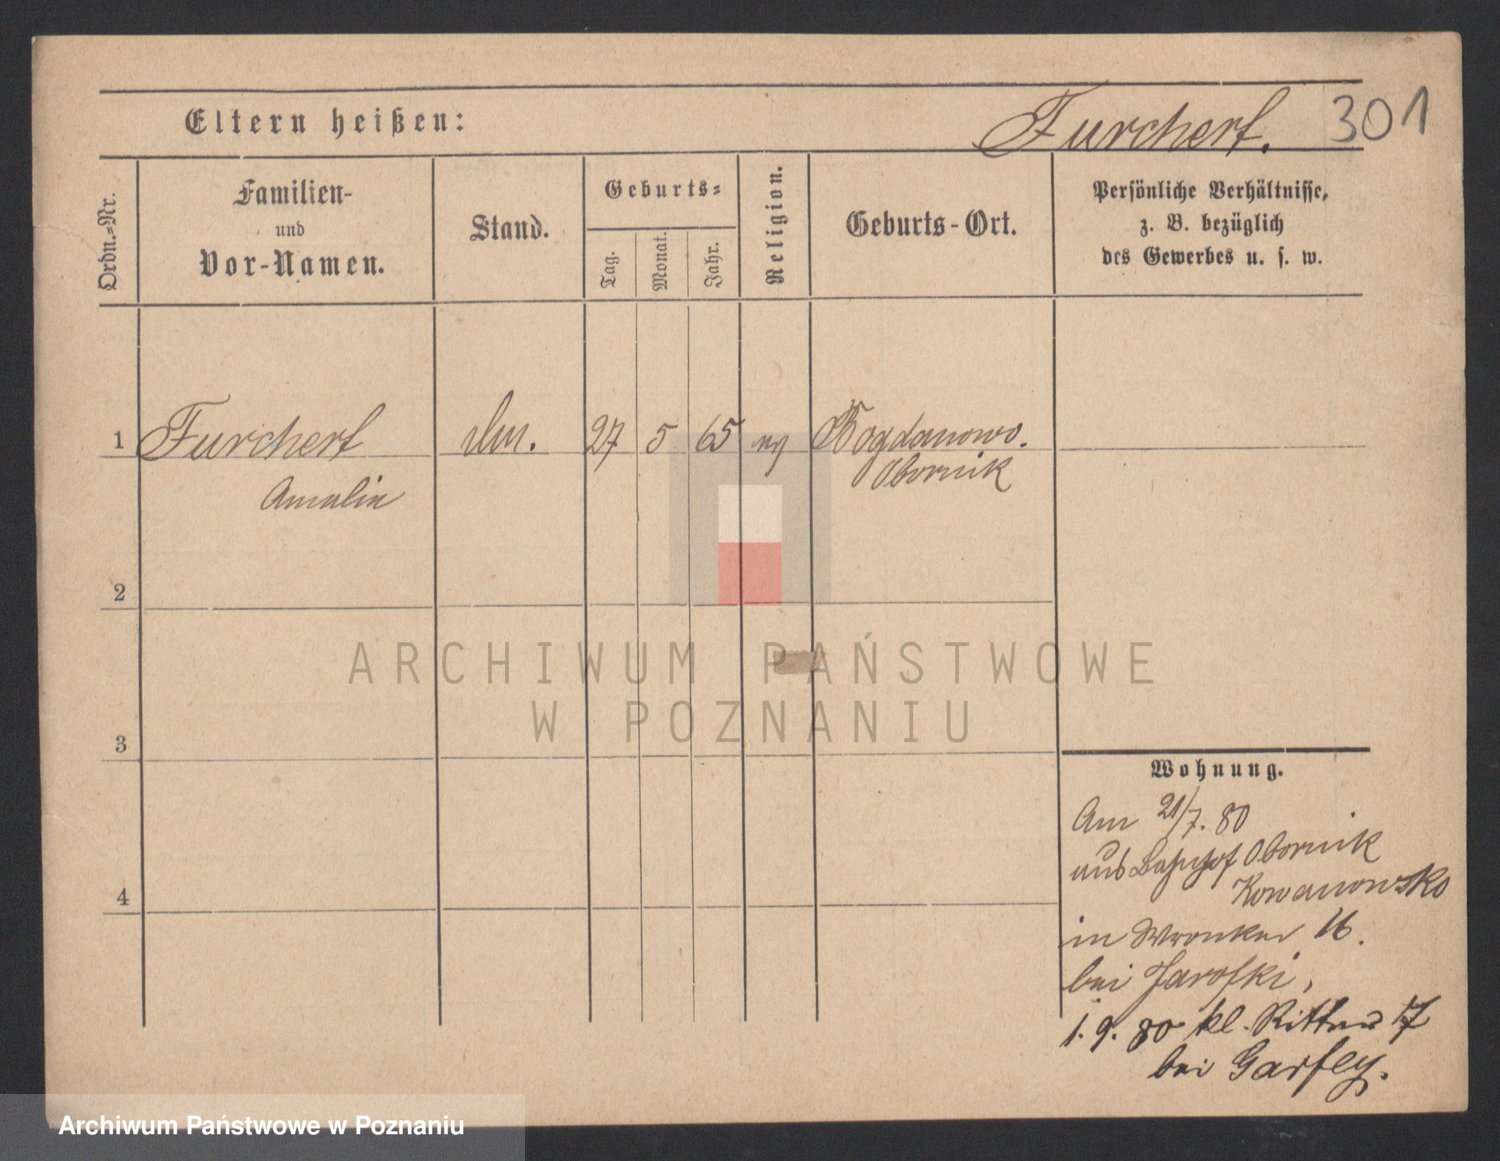 Eltern heißen:
Furchert. 301
Ordn.-Nr.
Familien-
und
Vor-Namen.
Stand.
Geburts-
Tag.
Monat.
Jahr.
Religion.
Geburts-Ort.
Persönliche Verhältnisse,
z. B. bezüglich
des Gewerbes u. s. w.
1 Furchert 27 5 65 Bogdanowo.
Amalie Obornik
2
3
4
ARCHIWUM PAŃSTWOWE
W POZNANIU
Wohnung.
Am 21/7. 80
aus Bahnhof Obornik
Kowanowsko
in Wronker 16.
bei Jarofki,
1. 9. 80 kl. Ritter 17
bei
Archiwum Państwowe w Poznaniu